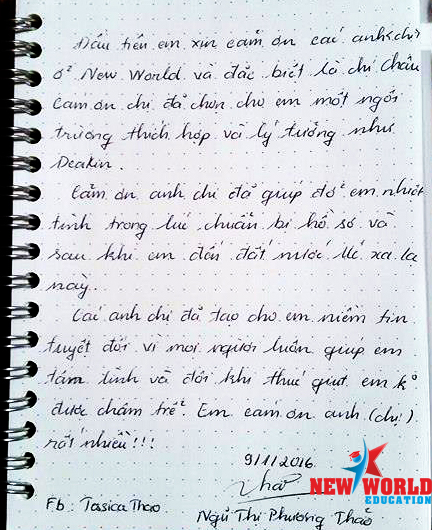 Đầu tiên em xin cảm ơn các anh chị
ở New World và đặc biệt là chị Châu
Cảm ơn chị đã chọn cho em một ngôi
trường thích hợp và lý tưởng như
Deakin.
Cảm ơn anh chị đã giúp đỡ em nhiệt
tình trong lúc chuẩn bị hồ sơ và
sau khi em đến đất nước Úc xa lạ
này.
Các anh chị đã tạo cho em niềm tin
tuyệt đối vì mọi người luôn giúp em
tâm lình và đôi khi thúc giục em k°
được chậm trễ. Em cảm ơn anh (chị)
rất nhiều!!!
9/1/2016.
Thảo
NEW WORLD
EDUCATION
Fb: Tasica Thao
Ngũ Thị Phương Thảo